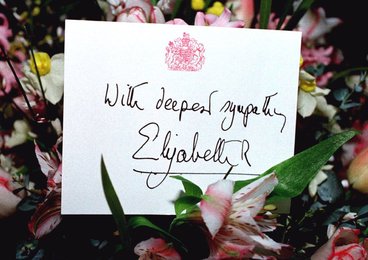 With deepest sympathy
Elizabeth R